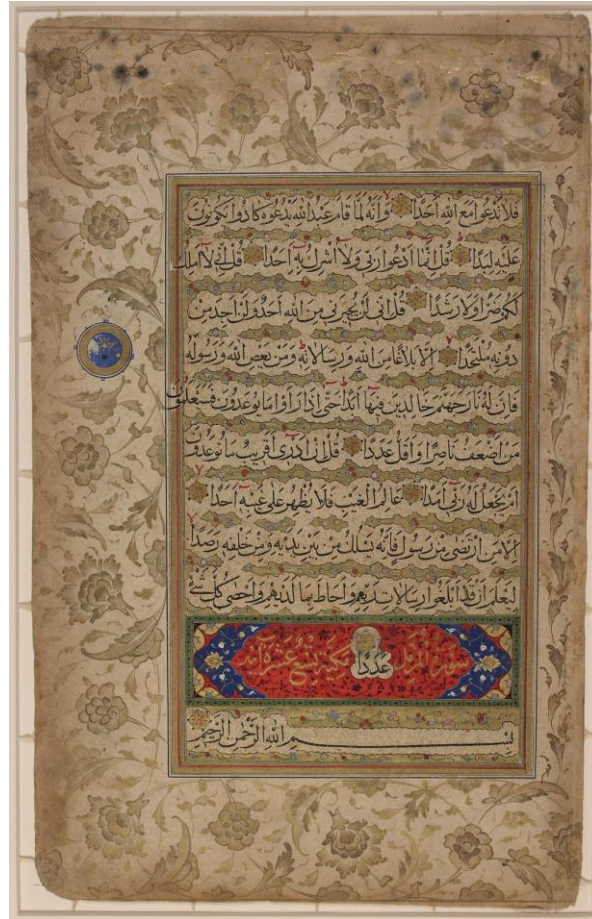 فلا تدعوا مع الله احدا وانه لما قام عبد الله يدعوه كادوا يكونون
عليه لبدا قل انما ادعوا ربي ولا اشرك به احدا قل اني لا املك
لكم ضرا ولا رشدا قل اني لن يجيرني من الله احد ولن اجد من
دونه ملتحدا الا بلاغا من الله ورسالاته ومن يعص الله ورسوله
فان له نار جهنم خالدين فيها ابدا حتى اذا راوا ما يوعدون فسيعلمون
من اضعف ناصرا واقل عددا قل ان ادري اقريب ما توعدون
ام يجعل له ربي امدا عالم الغيب فلا يظهر على غيبه احدا
الا من ارتضى من رسول فانه يسلك من بين يديه ومن خلفه رصدا
ليعلم ان قد ابلغوا رسالات ربهم واحاط بما لديهم واحصى كل شئ
سورة المزمل عددا مكية تسع عشر آية
بسم الله الرحمن الرحيم